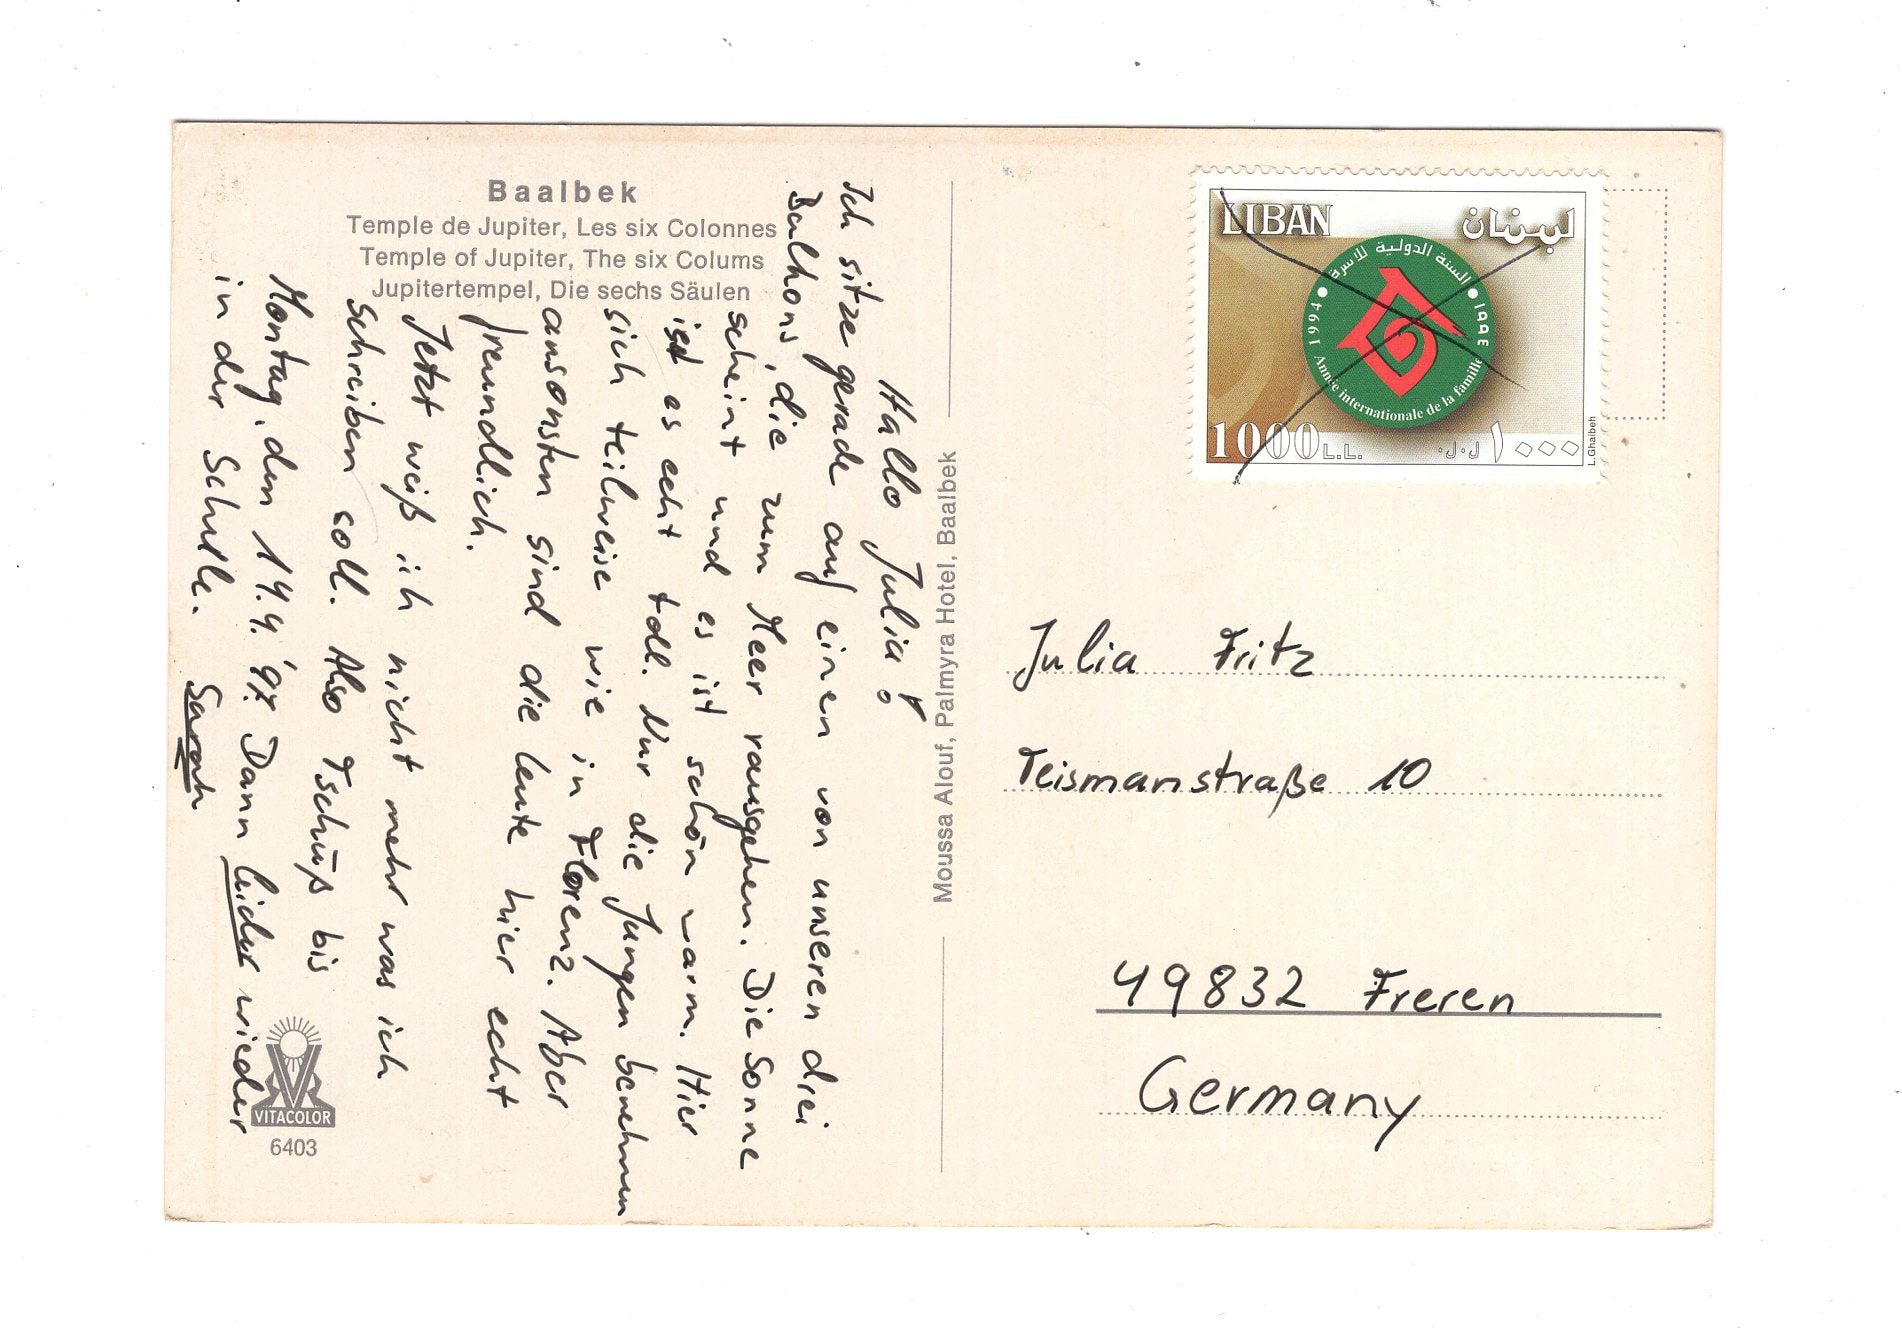 Baalbek
Temple de Jupiter, Les six Colonnes
Temple of Jupiter, The six Colums
Jupitertempel, Die sechs Säulen
Hallo Julia!
Ich sitze gerade auf einen von unseren drei
Balkons, die zum Meer rausgehen. Die Sonne
scheint und es ist schön warm. Hier
ist es echt toll. Nur die Jungen benehmen
sich teilweise wie in Florenz. Aber
ansonsten sind die Leute hier echt
freundlich.
Jetzt weiß ich nicht mehr was ich
schreiben soll. Also Tschüß bis
Montag, den 14.4.'97. Dann leider wieder
in der Schule. Sarah
VITACOLOR
6403
Moussa Alouf, Palmyra Hotel, Baalbek
LIBAN لبنان
السنة الدولية للاسرة
1994 ١٩٩٤
Année internationale de la famille
1000 L.L. ١٠٠٠ ل.ل.
L.Ghaibeh
Julia Fritz
Teismanstraße 10
49832 Freren
Germany